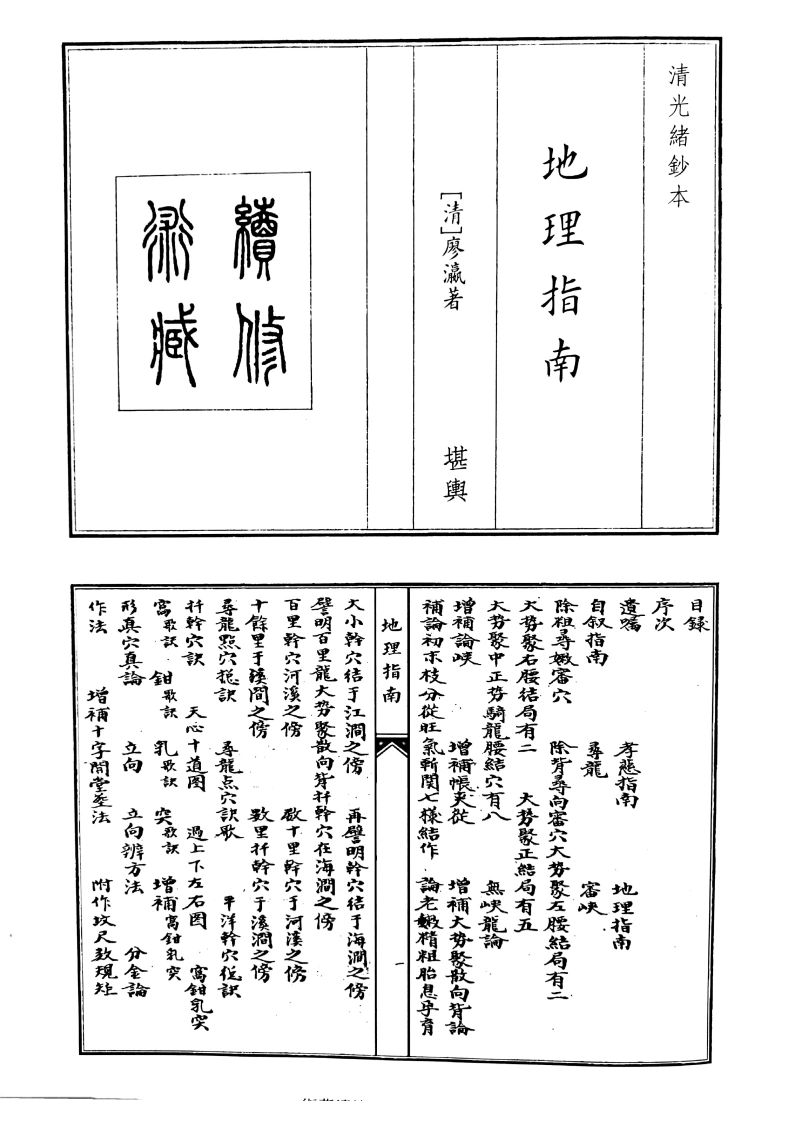 清光緒鈔本
地理指南
[清]廖瀛著
堪輿
續修
術藏
目錄
序次
遺囑 孝慈指南 地理指南
自叙指南 尋龍 審峽
除祖尋嫩審穴 除背尋向審穴大势聚左腰結局有二
大势聚右腰結局有二 大势聚正結局有五
大势聚中正势騎龍腰結穴有八 無峽龍論
增補論峽 增補帳夾從 增補大势聚散向背論
補論初末枝分從旺氣斬関七樣結作 論老嫩精粗胎息孕育
地理指南
一
大小幹穴结于江澗之傍 再譬明幹穴结于海澗之傍
譬明百里龍大势聚散向背扦幹穴在海澗之傍
百里幹穴河溪之傍 數十里幹穴于河溪之傍
十餘里于溪間之傍 數里扦幹穴于溪澗之傍
尋龍點穴捴訣 尋龍点穴訣歌 平洋幹穴捴訣
扦幹穴訣 天心十道图 過上下左右图 窩鉗乳突
窩歌訣 鉗歌訣 乳歌訣 突歌訣 增補窩鉗乳突
形真穴真論 立向 立向辨方法 分金論
作法 增補十字開堂荃法 附作坟尺致規矩